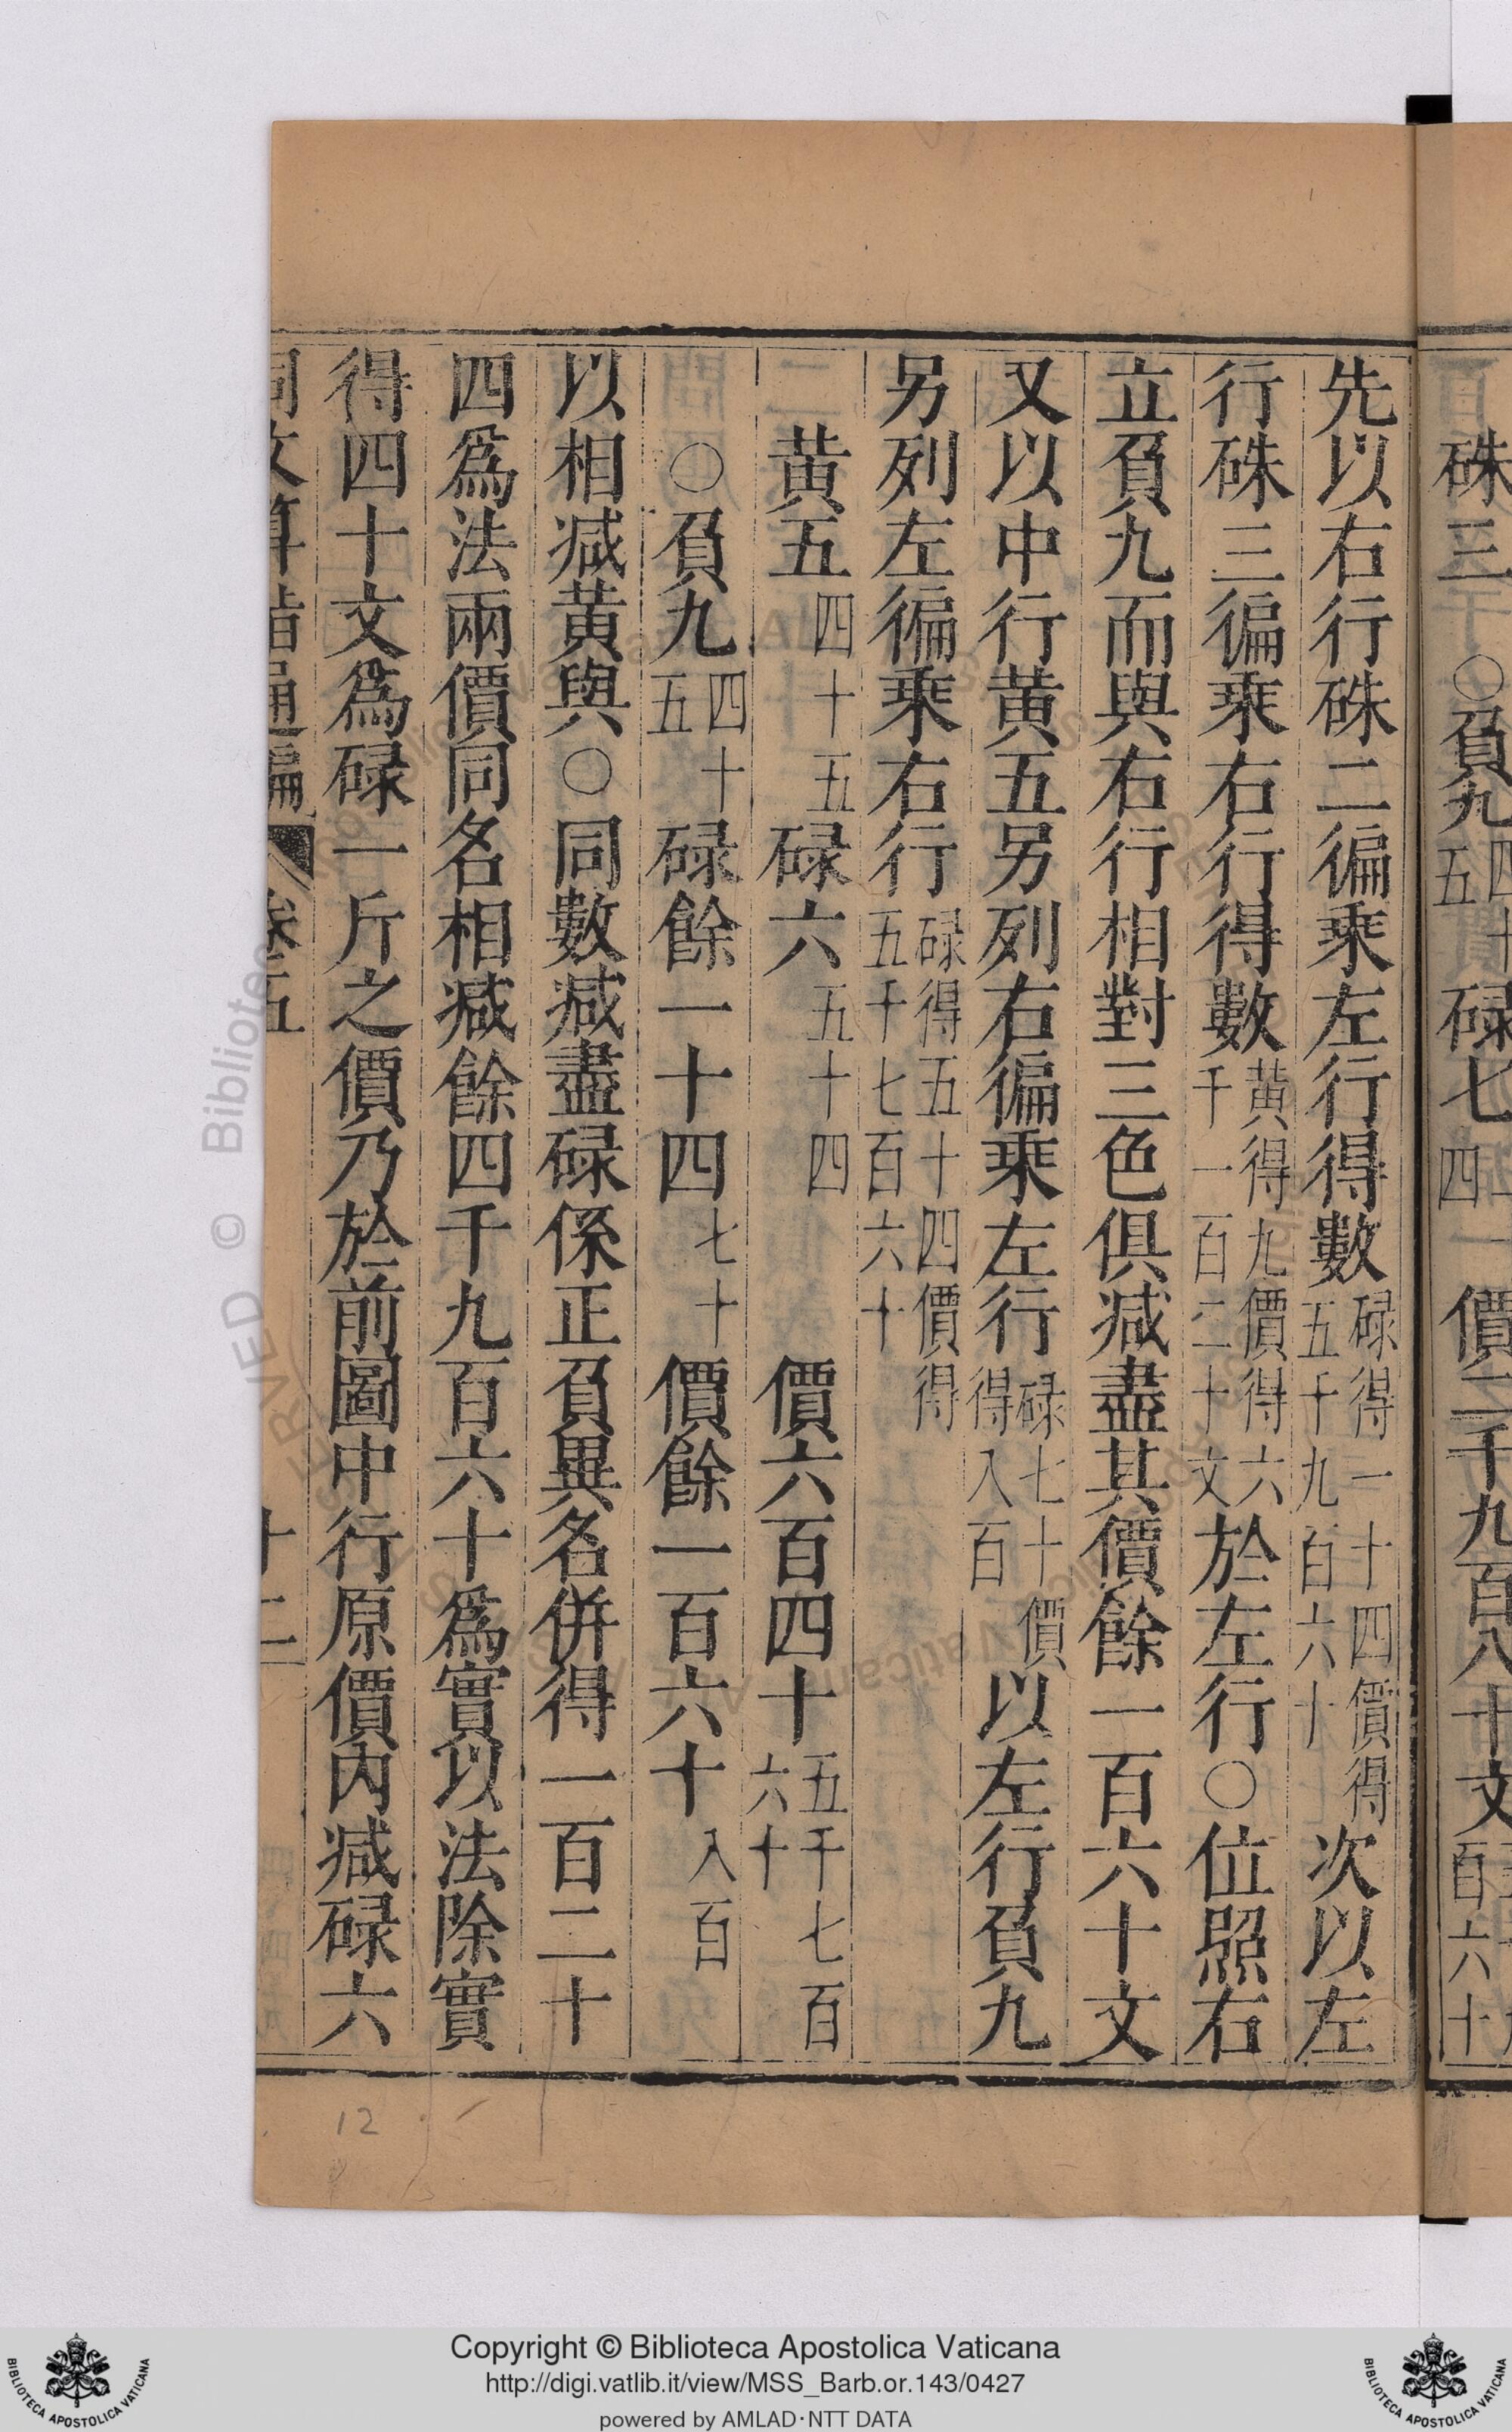 硃三〇負九四十五碌七價二千九百八十文百六十
先以右行硃二徧乘左行得數碌得一十四價得五千九百六十次以左
行硃三徧乘右行得數黄得九價得六千一百二十文於左行〇位照右
立負九而與右行相對三色俱减盡其價餘一百六十文
又以中行黄五另列右徧乘左行碌七十價得八百以左行負九
另列左徧乘右行碌得五十四價得五千七百六十
黄五四十五碌六五十四價六百四十五千七百六十
〇負九四十五碌餘一十四七十價餘一百六十八百
以相减黄與〇同數减盡碌係正負異名併得一百二十
四爲法兩價同名相减餘四千九百六十爲實以法除實
得四十文爲碌一斤之價乃於前圖中行原價内减碌六
同文算指通編 卷五 十二
12
Copyright © Biblioteca Apostolica Vaticana
http://digi.vatlib.it/view/MSS_Barb.or.143/0427
powered by AMLAD·NTT DATA
BIBLIOTECA APOSTOLICA VATICANA
BIBLIOTECA APOSTOLICA VATICANA